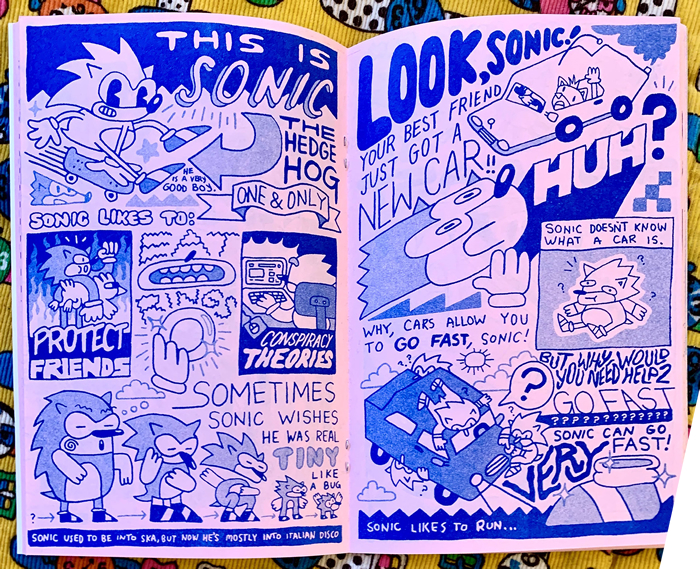 THIS IS
SONIC
THE
HEDGE
HOG
HE
IS A VERY
GOOD BOY.
ONE & ONLY
SONIC LIKES TO:
PROTECT
FRIENDS
CONSPIRACY
THEORIES
SOMETIMES
SONIC WISHES
HE WAS REAL
TINY
LIKE
A BUG
?
SONIC USED TO BE INTO SKA, BUT NOW HE'S MOSTLY INTO ITALIAN DISCO
LOOK, SONIC!
YOUR BEST FRIEND
JUST GOT A
NEW CAR!!
HUH?
SONIC DOESN'T KNOW
WHAT A CAR IS.
? ? ? ?
WHY, CARS ALLOW YOU
TO GO FAST, SONIC!
BUT WHY WOULD
YOU NEED HELP 2
GO FAST
?
????????????
SONIC CAN GO
VERY FAST!
SONIC LIKES TO RUN...